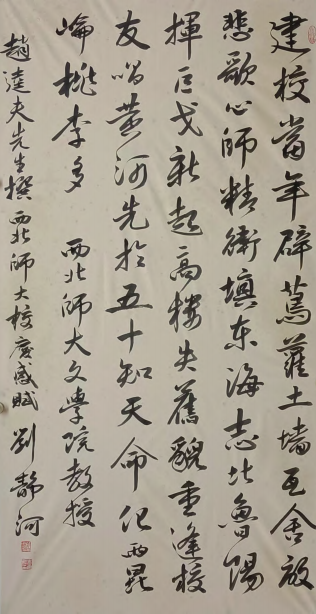 建校當年辟蔦蘿土墻瓦舍放
悲歌心師精衛填東海志比魯陽
揮巨戈新起高樓失舊貌重逢校
友唱黄河先於五十知天命化雨昆
崙桃李多 西北師大文學院教授
趙逵夫先生撰西北師大校慶感賦 劉靜河